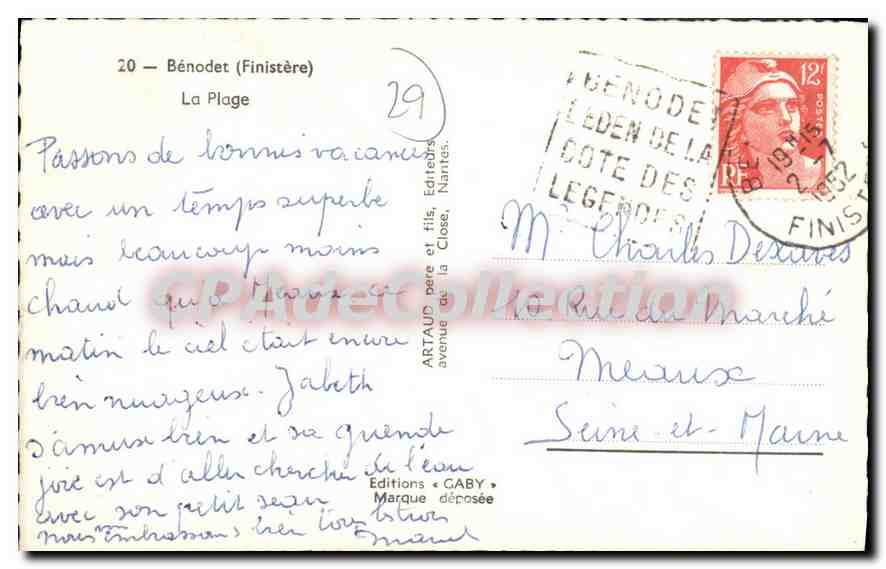 20 — Bénodet (Finistère)
La Plage
29
Passons de bonnes vacances
avec un temps superbe
mais beaucoup moins
chaud qu'à Meaux ce
matin le ciel était encore
bien nuageux.
s'amuse bien et sa grande
joie est d'aller chercher de l'eau
avec son petit seau
nous embrassons bien tous
ARTAUD père et fils, Editeurs
avenue de la Close, Nantes.
Editions « GABY »
Marque déposée
BENODET
L'EDEN DE LA
COTE DES
LEGENDES
12F
POSTES
RF
19 H -15
2 -7
1952
FINISTE
M Charles
Rue du Marché
Meaux
Seine-et-Marne
CPAdeCollection.com